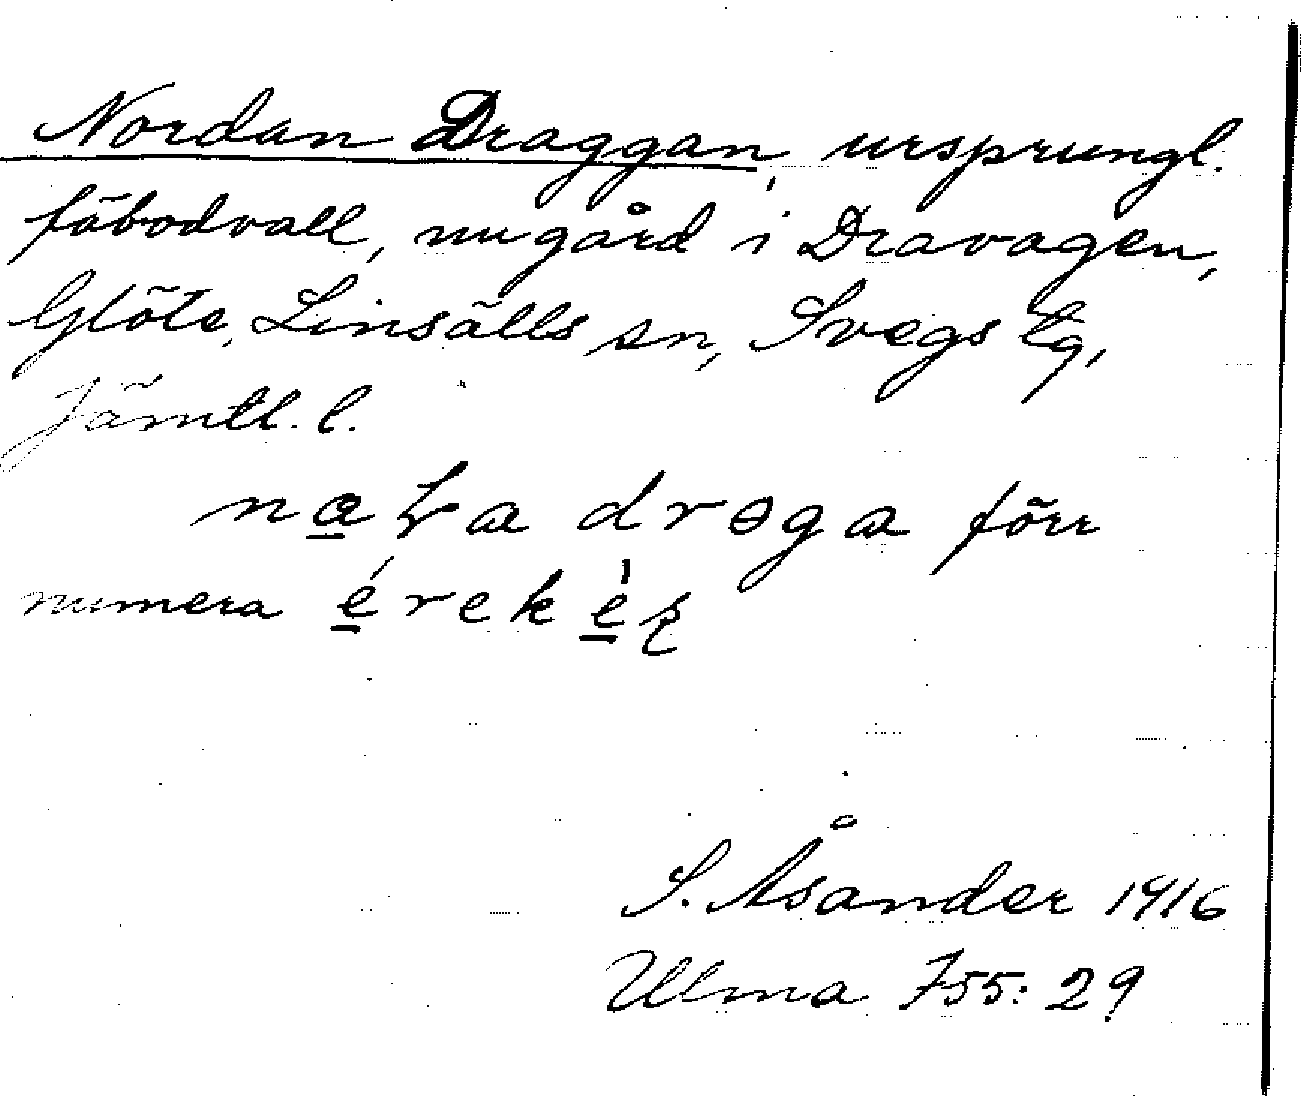 Nordan Draggan, ursprungl.
fäbodvall, nu gård i Dravagen,
Glöte, Linsälls sn, Svegs tg,
Jämtl. l.
droga förr
numera
S. Åsander 1916
Ulma 755: 29